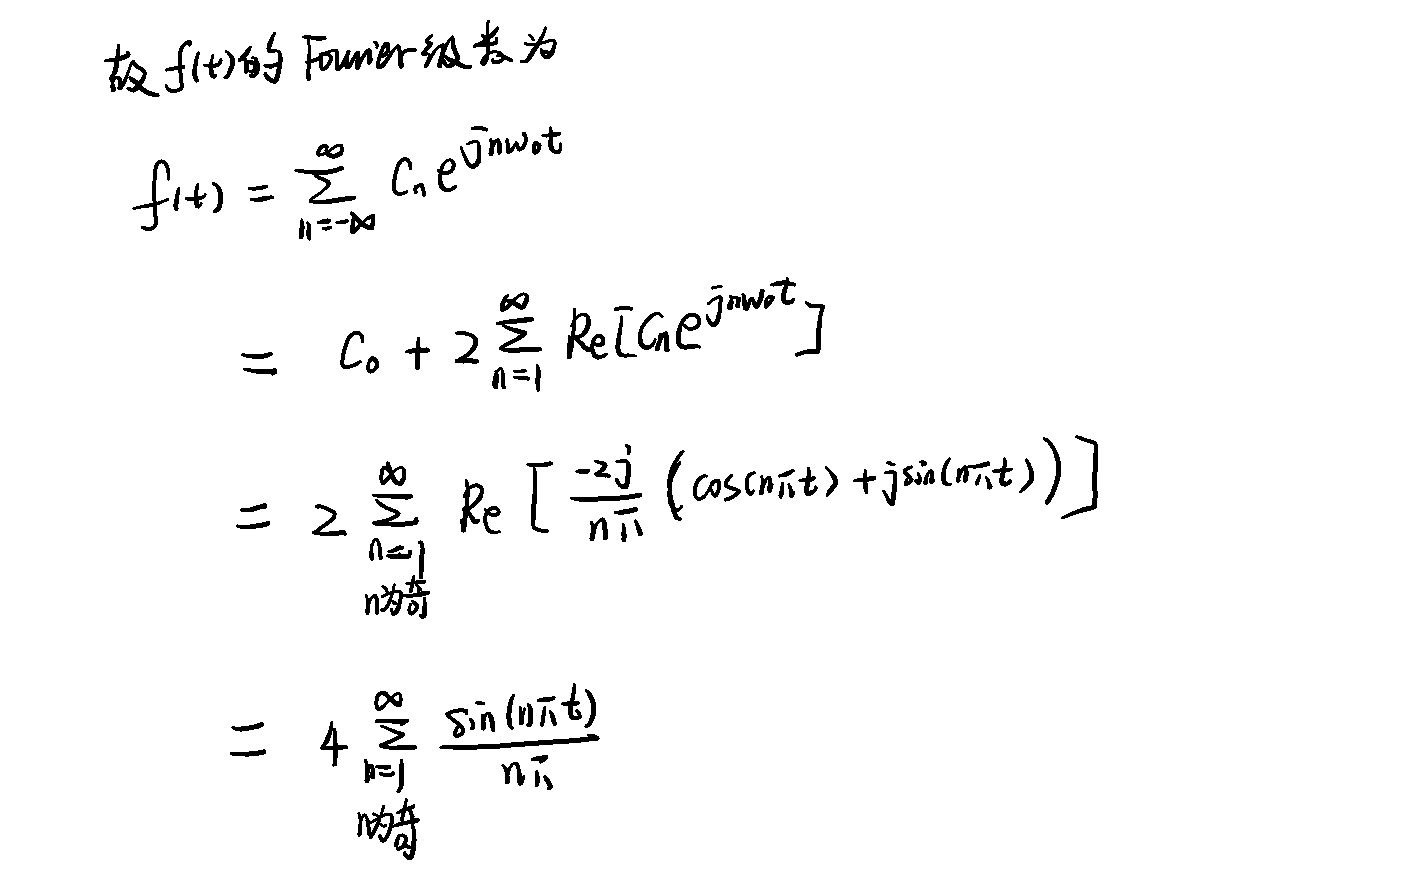 故f(t)的Fourier级数为
f(t) = \sum_{n=-\infty}^{\infty} C_n e^{jnω_0t}
= C_0 + 2\sum_{n=1}^{\infty} Re[C_n e^{jnω_0t}]
= 2\sum_{n=1, n为奇}^{\infty} Re[\frac{-2j}{nπ}(cos(nπt)+jsin(nπt))]
= 4\sum_{n=1, n为奇}^{\infty} \frac{sin(nπt)}{nπ}